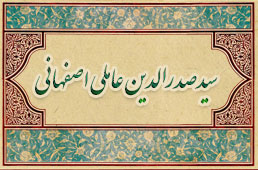 سید صدرالدین عاملی اصفهانی